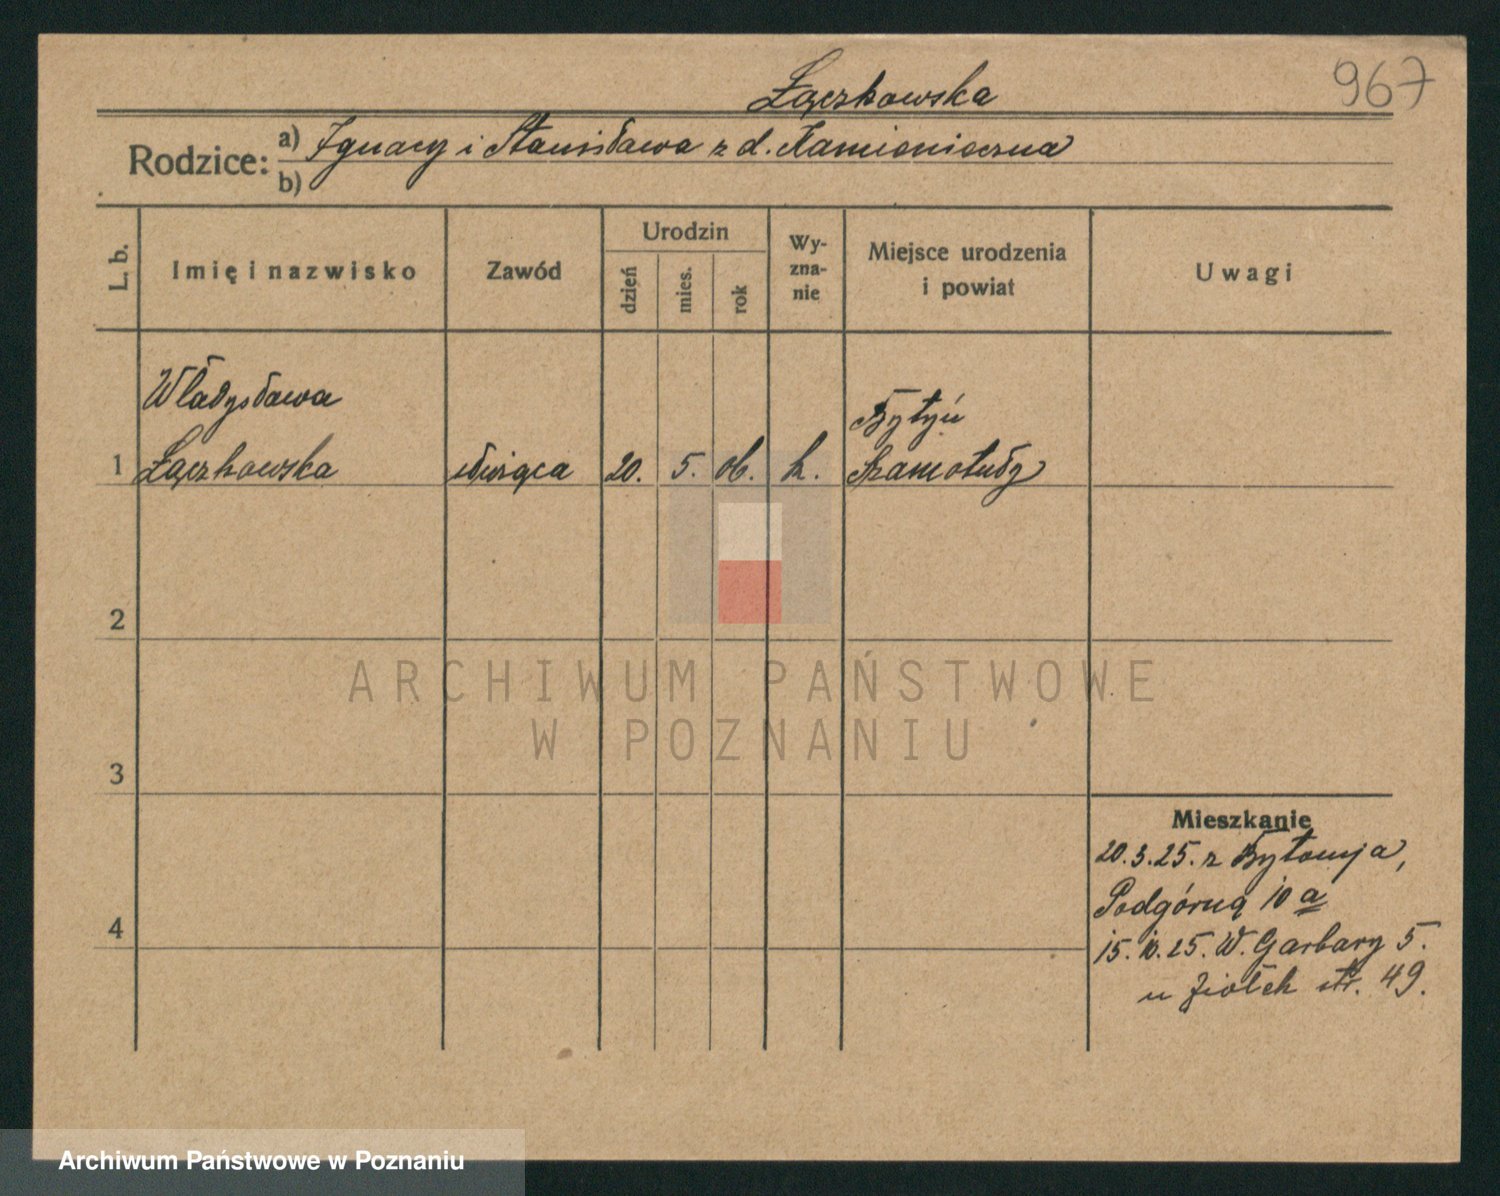 967
Łączkowska
Rodzice: a) Ignacy i Stanisława z d. Kamienieczna
b)
L. b.
Imię i nazwisko
Zawód
Urodzin
dzień
mies.
rok
Wy-
zna-
nie
Miejsce urodzenia
i powiat
Uwagi
Władysława
Bytyń
1 Łączkowska służąca 20. 5. 06. k. Szamotuły
2
3
4
ARCHIWUM PAŃSTWOWE
W POZNANIU
Mieszkanie
20.3.25. z Bytonja,
Podgórną 10 a
15.10.25. W. Garbary 5.
u Ziółek str. 49.
Archiwum Państwowe w Poznaniu